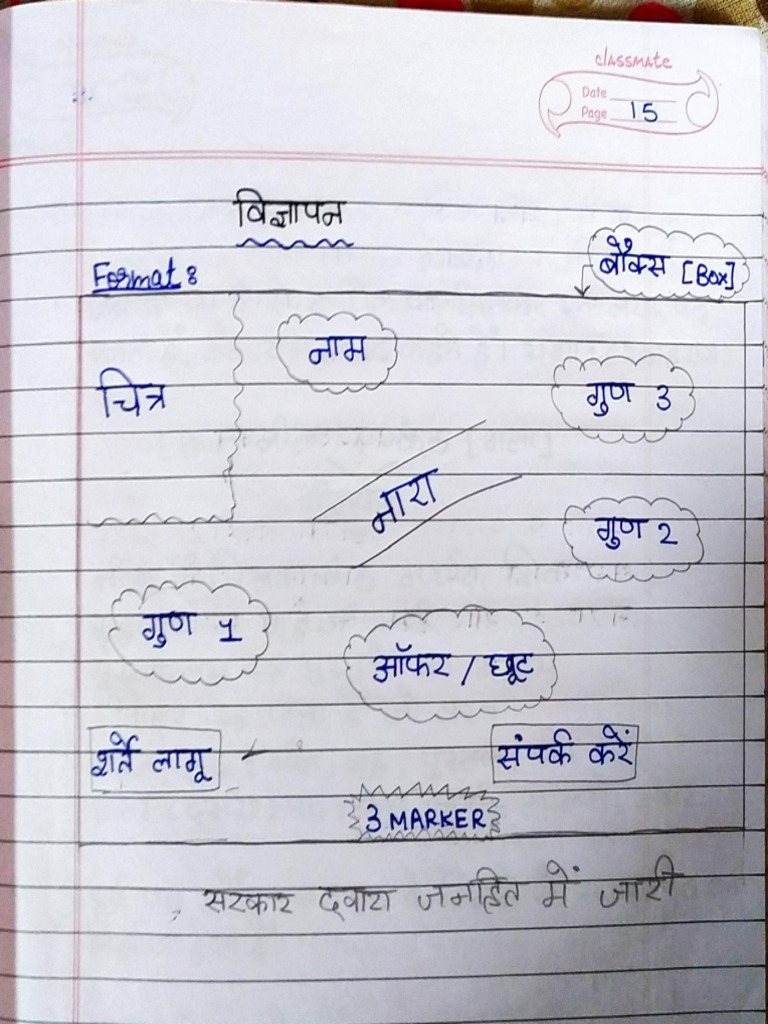 classmate
Date
Page 15
विज्ञापन
Format :
बौक्स [Box]
नाम
चित्र
गुण 3
नारा
गुण 2
गुण 1
ऑफर / छूट
शर्ते लागू
संपर्क करें
3 MARKER
सरकार द्वारा जनहित में जारी